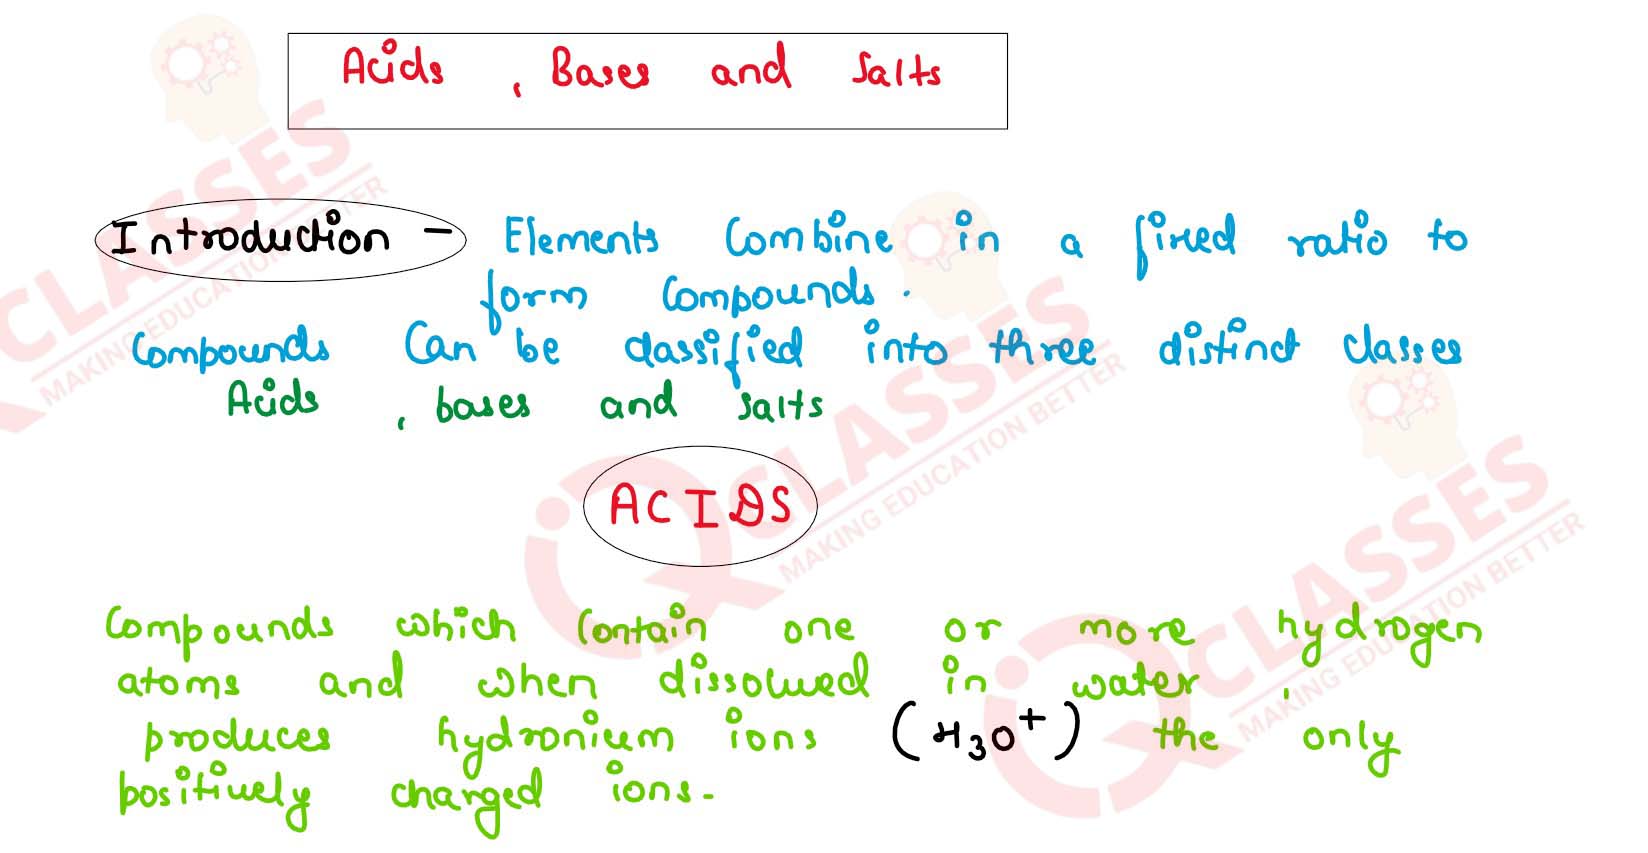 Acids , Bases and Salts
Introduction - Elements Combine in a fixed ratio to
form Compounds.
Compounds Can be classified into three distinct classes
Acids , bases and salts
ACIDS
Compounds which Contain one or more hydrogen
atoms and when dissolved in water ,
produces hydronium ions (H₃O⁺) the only
positively charged ions.
CLASSES
MAKING EDUCATION BETTER
iQ CLASSES
MAKING EDUCATION BETTER
iQ CLASSES
MAKING EDUCATION BETTER